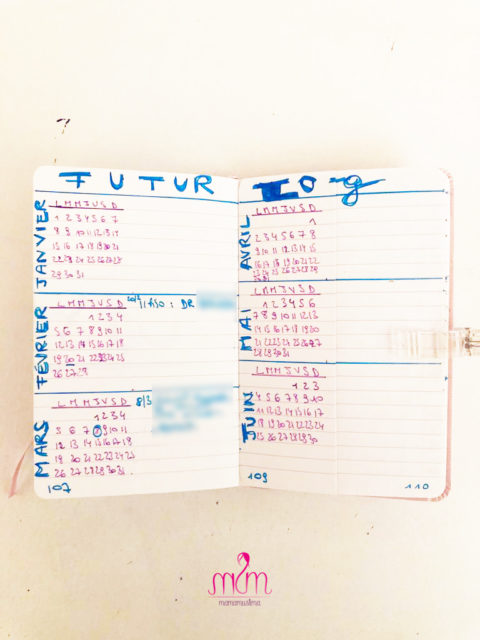 FUTUR
JANVIER
L M M J V S D
1 2 3 4 5 6 7
8 9 10 11 12 13 14
15 16 17 18 19 20 21
22 23 24 25 26 27 28
29 30 31
FÉVRIER
L M M J V S D
1 2 3 4
5 6 7 8 9 10 11
12 13 14 15 16 17 18
19 20 21 22 23 24 25
26 27 28
DR
MARS
L M M J V S D
8/3
1 2 3 4
5 6 7 8 9 10 11
12 13 14 15 16 17 18
19 20 21 22 23 24 25
26 27 28 29 30 31
107
log
AVRIL
L M M J V S D
1
2 3 4 5 6 7 8
9 10 11 12 13 14 15
16 17 18 19 20 21 22
23 24 25 26 27 28 29
MAI
L M M J V S D
1 2 3 4 5 6
7 8 9 10 11 12 13
14 15 16 17 18 19 20
21 22 23 24 25 26 27
28 29 30 31
JUIN
L M M J V S D
1 2 3
4 5 6 7 8 9 10
11 12 13 14 15 16 17
18 19 20 21 22 23 24
25 26 27 28 29 30
109
110
mamamuslima